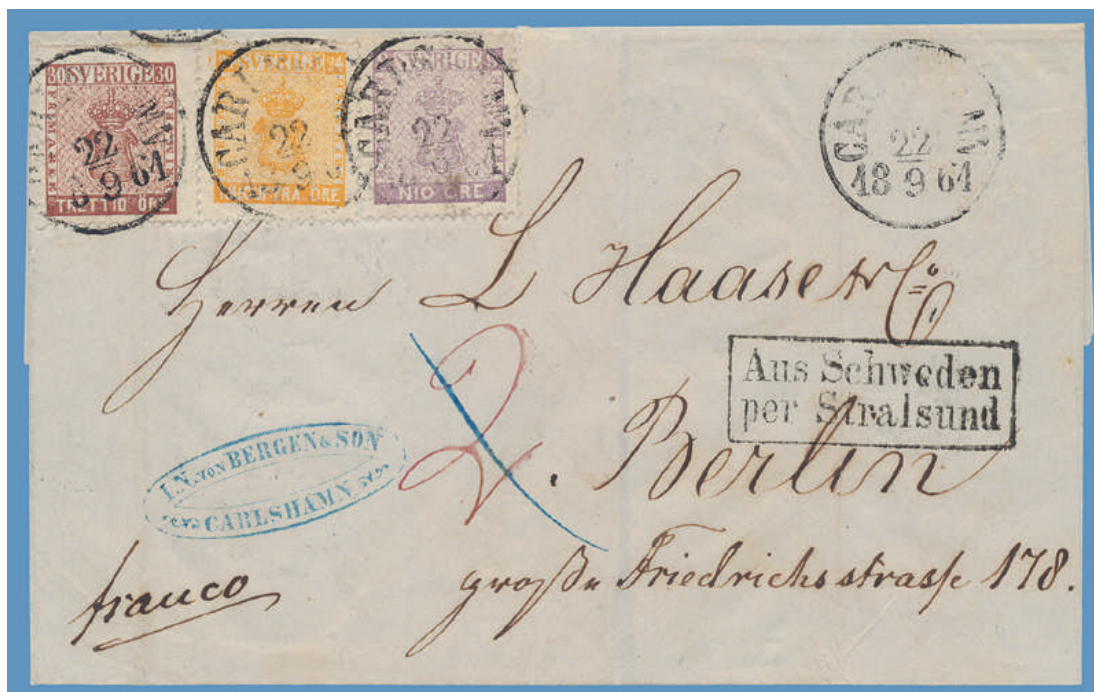 30 SVERIGE 30
FRIMÄRKE
TRETTIO ÖRE
22
9 61
SVERIGE 24
ÖRE
CARL
22
9
SVERIGE
NIO ÖRE
CARLS
22
22
18 9 61
Herren L Haase & Co
Aus Schweden
per Stralsund
2
Berlin
I. N. von BERGEN & SON
CARLSHAMN
große Friedrichsstrasse 178.
franco